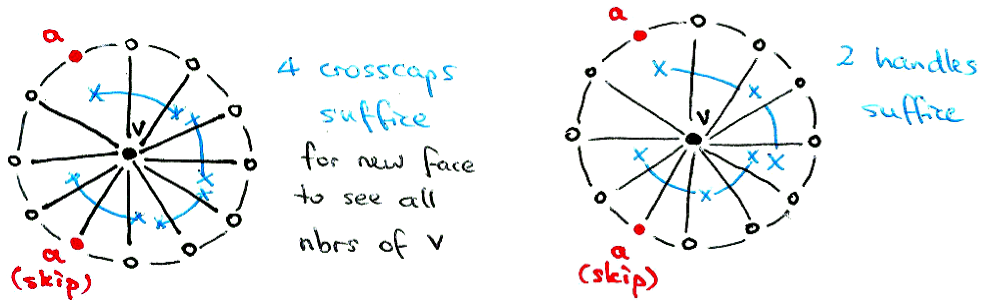 a
4 crosscaps
suffice
for new face
to see all
nbrs of v
v
a
(skip)
a
2 handles
suffice
v
a
(skip)